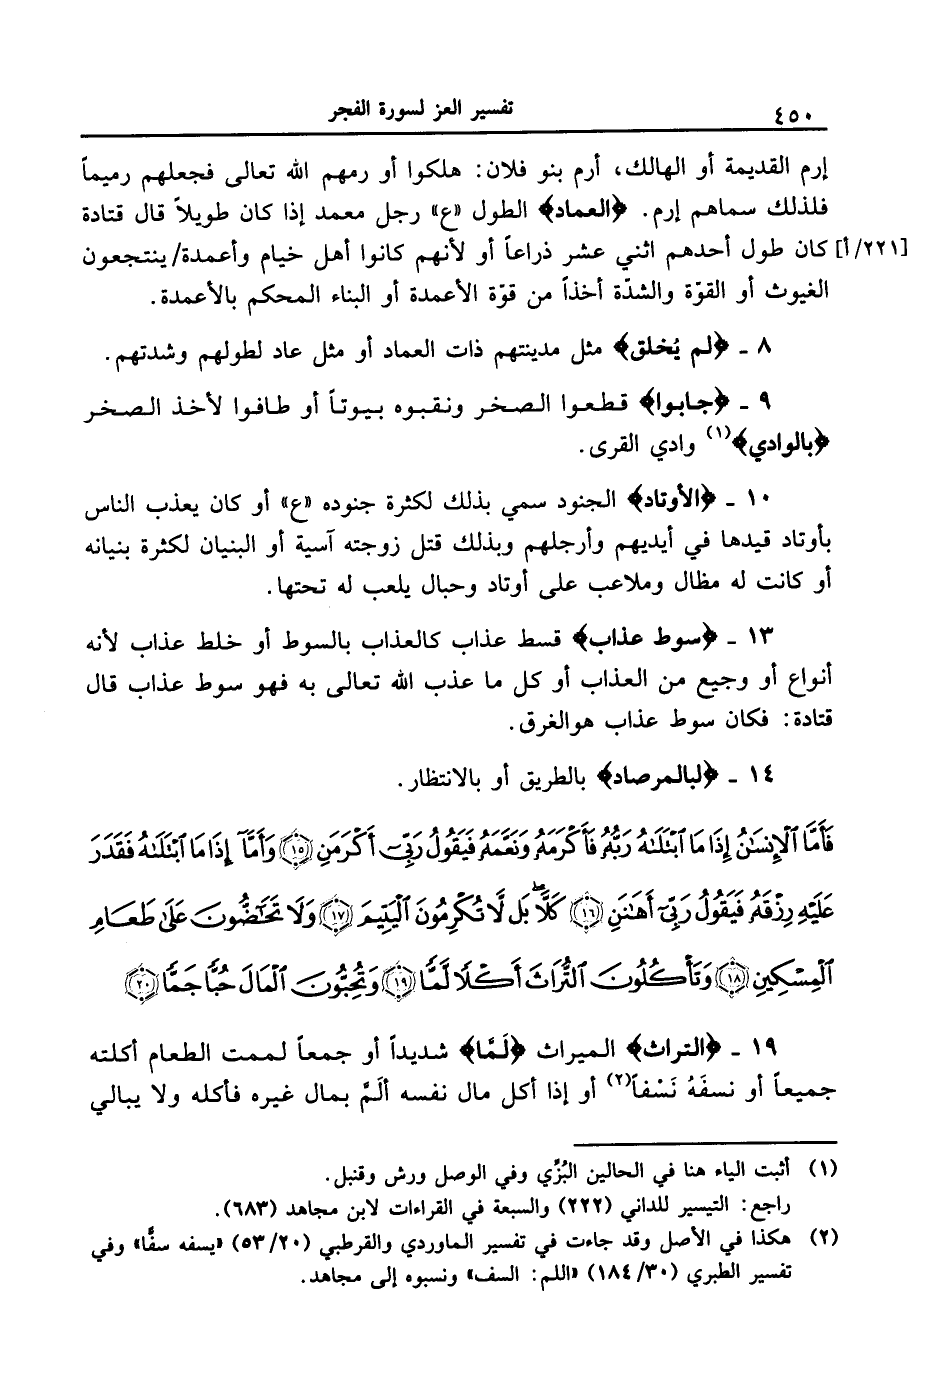 ٤٥٠ تفسير العز لسورة الفجر
إرم القديمة أو الهالك، أرم بنو فلان: هلكوا أو رمهم الله تعالى فجعلهم رميماً
فلذلك سماهم إرم. ﴿العماد﴾ الطول «ع» رجل معمد إذا كان طويلاً قال قتادة
[٢٢١/أ] كان طول أحدهم اثني عشر ذراعاً أو لأنهم كانوا أهل خيام وأعمدة/ ينتجعون
الغيوث أو القوّة والشدّة أخذاً من قوّة الأعمدة أو البناء المحكم بالأعمدة.
٨ ـ ﴿لم يُخلق﴾ مثل مدينتهم ذات العماد أو مثل عاد لطولهم وشدتهم.
٩ ـ ﴿جابوا﴾ قطعوا الصخر ونقبوه بيوتاً أو طافوا لأخذ الصخر
﴿بالوادي﴾(١) وادي القرى.
١٠ ـ ﴿الأوتاد﴾ الجنود سمي بذلك لكثرة جنوده «ع» أو كان يعذب الناس
بأوتاد قيدها في أيديهم وأرجلهم وبذلك قتل زوجته آسية أو البنيان لكثرة بنيانه
أو كانت له مظال وملاعب على أوتاد وحبال يلعب له تحتها.
١٣ ـ ﴿سوط عذاب﴾ قسط عذاب كالعذاب بالسوط أو خلط عذاب لأنه
أنواع أو وجيع من العذاب أو كل ما عذب الله تعالى به فهو سوط عذاب قال
قتادة: فكان سوط عذاب هوالغرق.
١٤ ـ ﴿لبالمرصاد﴾ بالطريق أو بالانتظار.
فَأَمَّا ٱلْإِنسَٰنُ إِذَا مَا ٱبْتَلَىٰهُ رَبُّهُۥ فَأَكْرَمَهُۥ وَنَعَّمَهُۥ فَيَقُولُ رَبِّىٓ أَكْرَمَنِ ﴿١٥﴾ وَأَمَّآ إِذَا مَا ٱبْتَلَىٰهُ فَقَدَرَ
عَلَيْهِ رِزْقَهُۥ فَيَقُولُ رَبِّىٓ أَهَٰنَنِ ﴿١٦﴾ كَلَّا ۖ بَل لَّا تُكْرِمُونَ ٱلْيَتِيمَ ﴿١٧﴾ وَلَا تَحَٰٓضُّونَ عَلَىٰ طَعَامِ
ٱلْمِسْكِينِ ﴿١٨﴾ وَتَأْكُلُونَ ٱلتُّرَاثَ أَكْلًا لَّمًّا ﴿١٩﴾ وَتُحِبُّونَ ٱلْمَالَ حُبًّا جَمًّا ﴿٢٠﴾
١٩ ـ ﴿التراث﴾ الميراث ﴿لَمًّا﴾ شديداً أو جمعاً لممت الطعام أكلته
جميعاً أو نسفَهُ نَسْفاً(٢) أو إذا أكل مال نفسه ألَمَّ بمال غيره فأكله ولا يبالي
(١) أثبت الياء هنا في الحالين البُزِّي وفي الوصل ورش وقنبل.
راجع: التيسير للداني (٢٢٢) والسبعة في القراءات لابن مجاهد (٦٨٣).
(٢) هكذا في الأصل وقد جاءت في تفسير الماوردي والقرطبي (٥٣/٢٠) «يسفه سفًّا» وفي
تفسير الطبري (١٨٤/٣٠) «اللم: السف» ونسبوه إلى مجاهد.